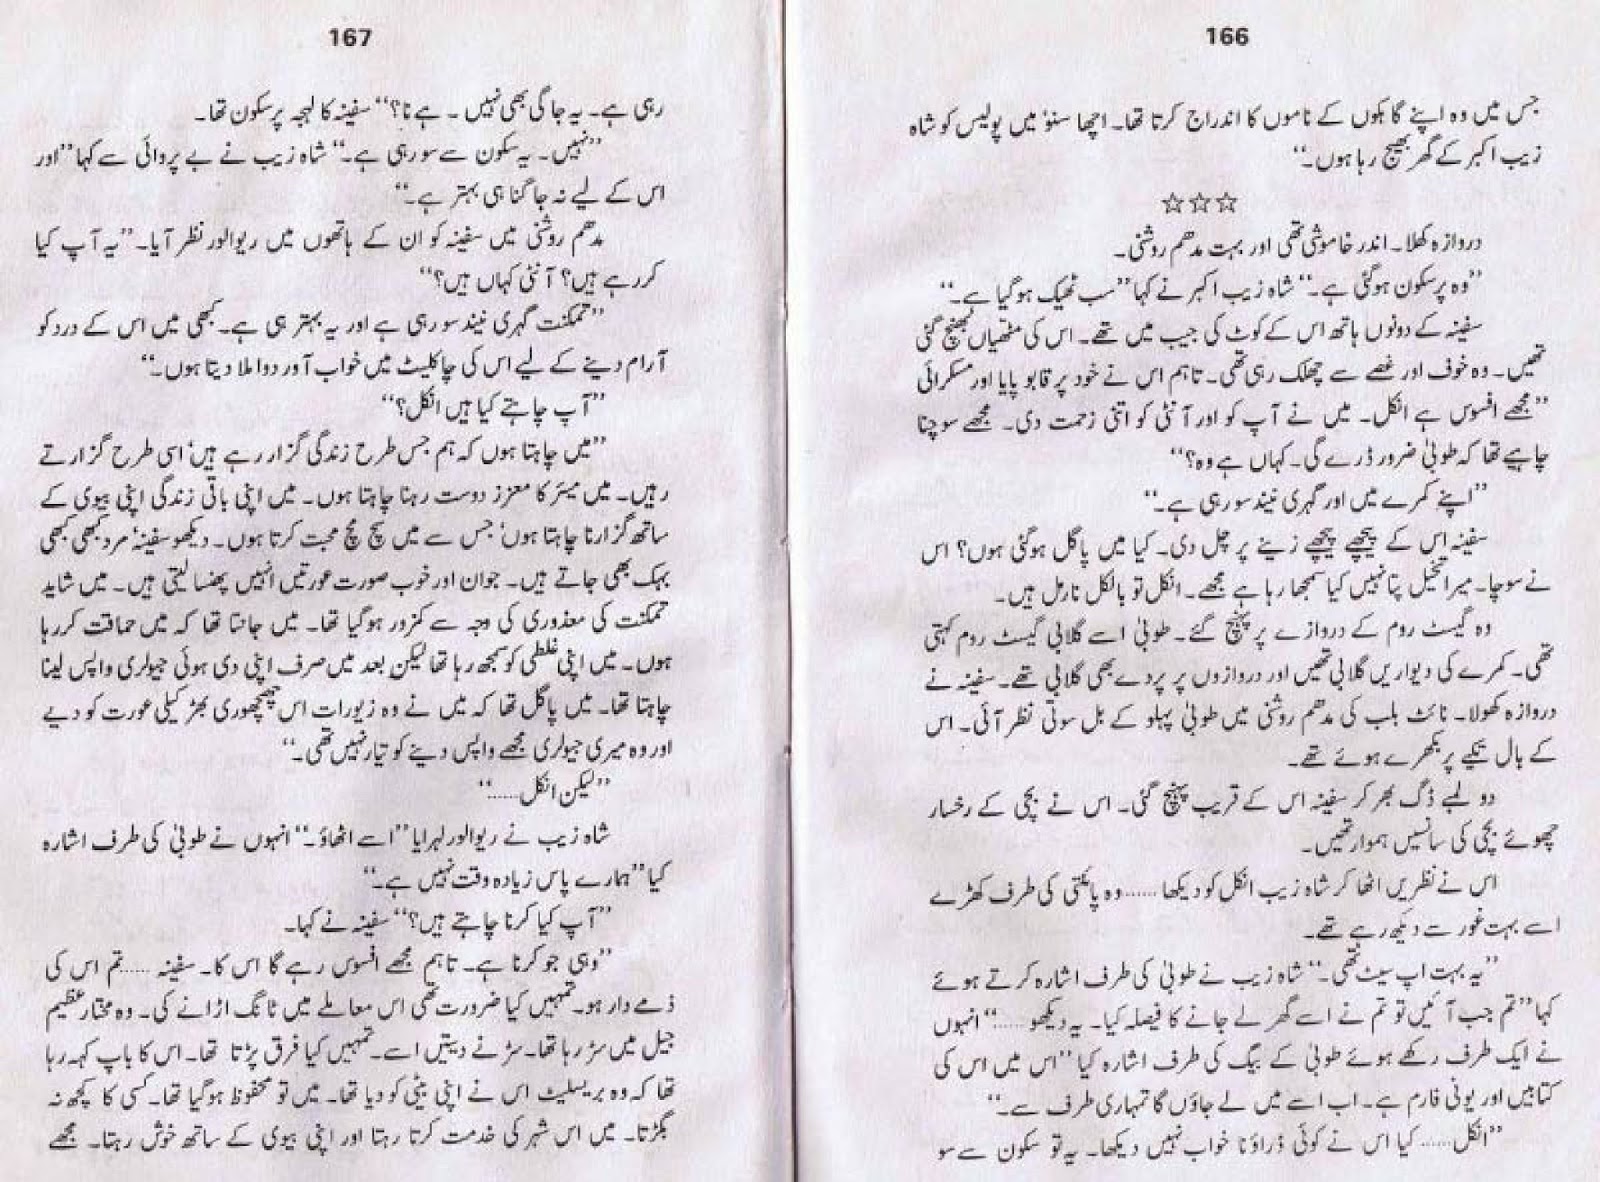 166
جس میں وہ اپنے گاہکوں کے ناموں کا اندراج کرتا تھا۔ اچھا سنو' میں پولیس کو شاہ
زیب اکبر کے گھر بھیج رہا ہوں۔‘‘
☆☆☆
دروازہ کھلا۔ اندر خاموشی تھی اور بہت مدھم روشنی۔
’’وہ پرسکون ہوگئی ہے۔‘‘ شاہ زیب اکبر نے کہا ’’سب ٹھیک ہوگیا ہے۔‘‘
سفینہ کے دونوں ہاتھ اس کے کوٹ کی جیب میں تھے۔ اس کی مٹھیاں بھنچ گئی
تھیں۔ وہ خوف اور غصے سے چھلک رہی تھی۔ تاہم اس نے خود پر قابو پایا اور مسکرائی
’’مجھے افسوس ہے انکل۔ میں نے آپ کو اور آنٹی کو اتنی زحمت دی۔ مجھے سوچنا
چاہیے تھا کہ طوبیٰ ضرور ڈرے گی۔ کہاں ہے وہ؟‘‘
’’اپنے کمرے میں اور گہری نیند سو رہی ہے۔‘‘
سفینہ اس کے پیچھے پیچھے زینے پر چل دی۔ کیا میں پاگل ہوگئی ہوں؟ اس
نے سوچا۔ میرا تخیل پتا نہیں کیا سمجھا رہا ہے مجھے۔ انکل تو بالکل نارمل ہیں۔
وہ گیسٹ روم کے دروازے پر پہنچ گئے۔ طوبیٰ اسے گلابی گیسٹ روم کہتی
تھی۔ کمرے کی دیواریں گلابی تھیں اور دروازوں پر پردے بھی گلابی تھے۔ سفینہ نے
دروازہ کھولا۔ نائٹ بلب کی مدھم روشنی میں طوبیٰ پہلو کے بل سوتی نظر آئی۔ اس
کے بال تکیے پر بکھرے ہوئے تھے۔
دو لمبے ڈگ بھر کر سفینہ اس کے قریب پہنچ گئی۔ اس نے بچی کے رخسار
چھوئے بچی کی سانسیں ہموار تھیں۔
اس نے نظریں اٹھا کر شاہ زیب انکل کو دیکھا ...... وہ پائنتی کی طرف کھڑے
اسے بہت غور سے دیکھ رہے تھے۔
’’یہ بہت اپ سیٹ تھی۔‘‘ شاہ زیب نے طوبیٰ کی طرف اشارہ کرتے ہوئے
کہا ’’تم جب آئیں تو تم نے اسے گھر لے جانے کا فیصلہ کیا۔ یہ دیکھو ......‘‘ انہوں
نے ایک طرف رکھے ہوئے طوبیٰ کے بیگ کی طرف اشارہ کیا ’’اس میں اس کی
کتابیں اور یونی فارم ہے۔ اب اسے میں لے جاؤں گا تمہاری طرف سے۔‘‘
’’انکل ...... کیا اس نے کوئی ڈراؤنا خواب نہیں دیکھا۔ یہ تو سکون سے سو
167
رہی ہے۔ یہ جاگی بھی نہیں۔ ہے نا؟‘‘ سفینہ کا لہجہ پرسکون تھا۔
’’نہیں۔ یہ سکون سے سو رہی ہے۔‘‘ شاہ زیب نے بے پروائی سے کہا ’’اور
اس کے لیے نہ جاگنا ہی بہتر ہے۔‘‘
مدھم روشنی میں سفینہ کو ان کے ہاتھوں میں ریوالور نظر آیا۔ ’’یہ آپ کیا
کر رہے ہیں؟ آنٹی کہاں ہیں؟‘‘
’’تمکنت گہری نیند سو رہی ہے اور یہ بہتر ہی ہے۔ کبھی میں اس کے درد کو
آرام دینے کے لیے اس کی چاکلیٹ میں خواب آور دوا ملا دیتا ہوں۔‘‘
’’آپ چاہتے کیا ہیں انکل؟‘‘
’’میں چاہتا ہوں کہ ہم جس طرح زندگی گزار رہے ہیں' اسی طرح گزارتے
رہیں۔ میں میئر کا معزز دوست رہنا چاہتا ہوں۔ میں اپنی باقی زندگی اپنی بیوی کے
ساتھ گزارنا چاہتا ہوں' جس سے میں سچ مچ محبت کرتا ہوں۔ دیکھو سفینہ' مرد کبھی کبھی
بہک بھی جاتے ہیں۔ جوان اور خوب صورت عورتیں انہیں پھنسا لیتی ہیں۔ میں شاید
تمکنت کی معذوری کی وجہ سے کمزور ہوگیا تھا۔ میں جانتا تھا کہ میں حماقت کر رہا
ہوں۔ میں اپنی غلطی کو سمجھ رہا تھا لیکن بعد میں صرف اپنی دی ہوئی جیولری واپس لینا
چاہتا تھا۔ میں پاگل تھا کہ میں نے وہ زیورات اس چھچھوری بھڑکیلی عورت کو دیے
اور وہ میری جیولری مجھے واپس دینے کو تیار نہیں تھی۔‘‘
’’لیکن انکل ......‘‘
شاہ زیب نے ریوالور لہرایا ’’اسے اٹھاؤ۔‘‘ انہوں نے طوبیٰ کی طرف اشارہ
کیا ’’ہمارے پاس زیادہ وقت نہیں ہے۔‘‘
’’آپ کیا کرنا چاہتے ہیں؟‘‘ سفینہ نے کہا۔
’’وہی جو کرنا ہے۔ تاہم مجھے افسوس رہے گا اس کا۔ سفینہ ...... تم اس کی
ذمے دار ہو۔ تمہیں کیا ضرورت تھی اس معاملے میں ٹانگ اڑانے کی۔ وہ مختار عظیم
جیل میں سڑ رہا تھا۔ سڑنے دیتیں اسے۔ تمہیں کیا فرق پڑتا تھا۔ اس کا باپ کہہ رہا
تھا کہ وہ بریسلیٹ اس نے اپنی بیٹی کو دیا تھا۔ میں تو محفوظ ہوگیا تھا۔ کسی کا کچھ نہ
بگڑتا۔ میں اس شہر کی خدمت کرتا رہتا اور اپنی بیوی کے ساتھ خوش رہتا۔ مجھے